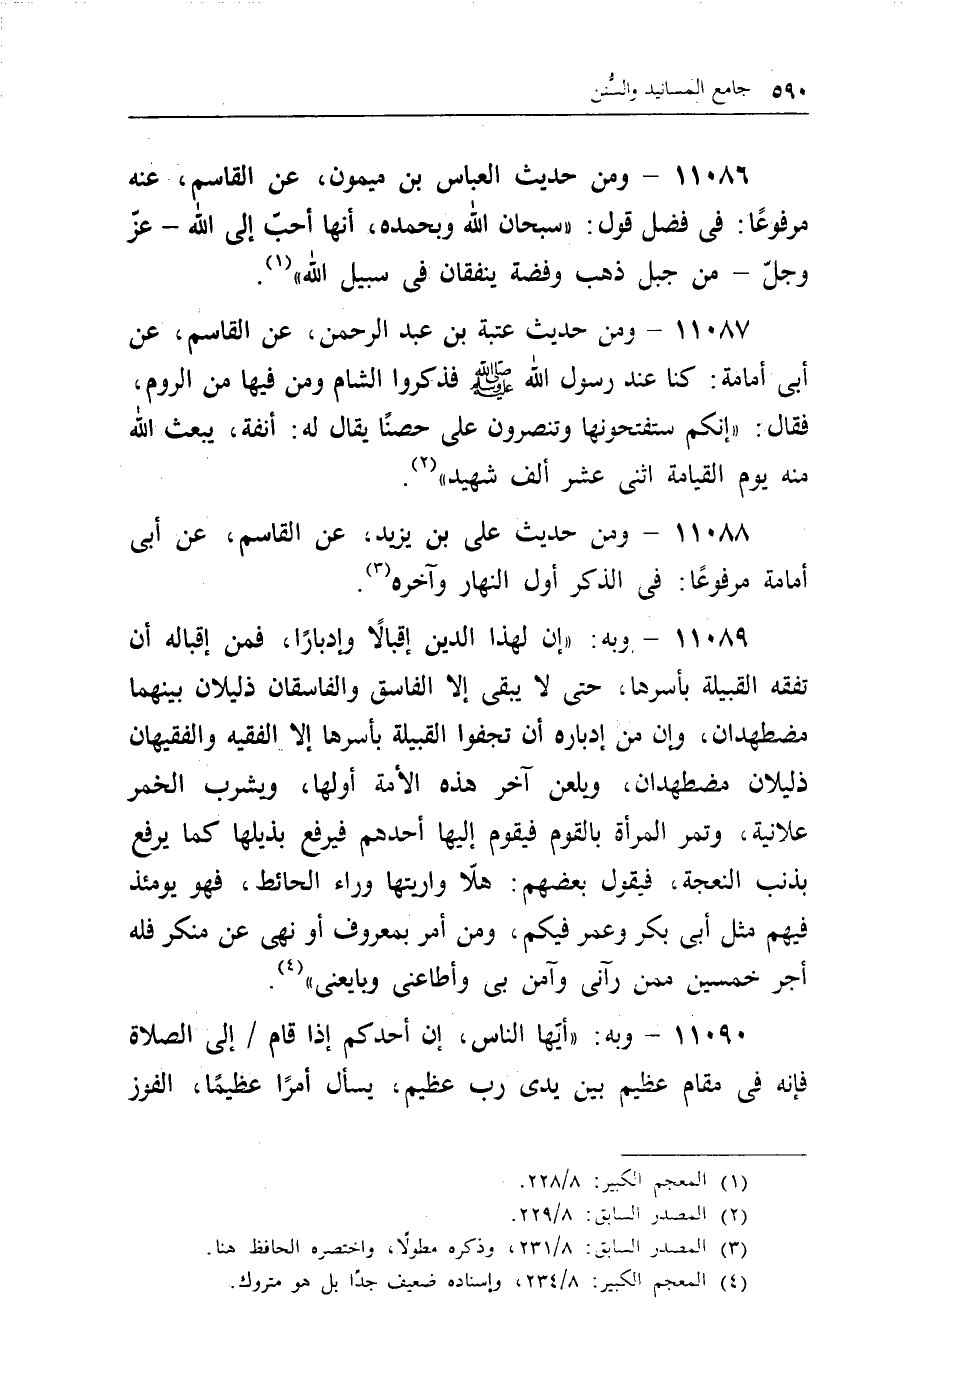 ٥٩٠ جامع المسانيد والسُّنن
١١٠٨٦ – ومن حديث العباس بن ميمون، عن القاسم، عنه
مرفوعًا: فى فضل قول: «سبحان الله وبحمده، أنها أحبّ إلى الله – عزّ
وجلّ – من جبل ذهب وفضة ينفقان فى سبيل الله»(١).
١١٠٨٧ – ومن حديث عتبة بن عبد الرحمن، عن القاسم، عن
أبى أمامة: كنا عند رسول الله ﷺ فذكروا الشام ومن فيها من الروم،
فقال: «إنكم ستفتحونها وتنصرون على حصنًا يقال له: أنفة، يبعث الله
منه يوم القيامة اثنى عشر ألف شهيد»(٢).
١١٠٨٨ – ومن حديث على بن يزيد، عن القاسم، عن أبى
أمامة مرفوعًا: فى الذكر أول النهار وآخره(٣).
١١٠٨٩ – وبه: «إن لهذا الدين إقبالًا وإدبارًا، فمن إقباله أن
تفقه القبيلة بأسرها، حتى لا يبقى إلا الفاسق والفاسقان ذليلان بينهما
مضطهدان، وإن من إدباره أن تجفوا القبيلة بأسرها إلا الفقيه والفقيهان
ذليلان مضطهدان، ويلعن آخر هذه الأمة أولها، ويشرب الخمر
علانية، وتمر المرأة بالقوم فيقوم إليها أحدهم فيرفع بذيلها كما يرفع
بذنب النعجة، فيقول بعضهم: هلّا واريتها وراء الحائط، فهو يومئذ
فيهم مثل أبى بكر وعمر فيكم، ومن أمر بمعروف أو نهى عن منكر فله
أجر خمسين ممن رآنى وآمن بى وأطاعنى وبايعنى»(٤).
١١٠٩٠ – وبه: «أيّها الناس، إن أحدكم إذا قام / إلى الصلاة
فإنه فى مقام عظيم بين يدى رب عظيم، يسأل أمرًا عظيمًا، الفوز
(١) المعجم الكبير: ٢٢٨/٨.
(٢) المصدر السابق: ٢٢٩/٨.
(٣) المصدر السابق: ٢٣١/٨، وذكره مطولًا، واختصره الحافظ هنا.
(٤) المعجم الكبير: ٢٣٤/٨، وإسناده ضعيف جدًا بل هو متروك.